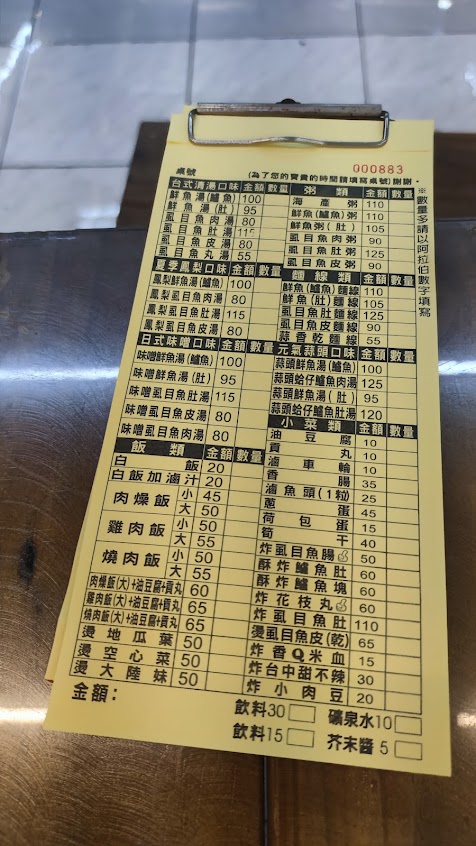 000883
桌號 (為了您的寶貴的時間請填寫桌號)謝謝.
※數量多請以阿拉伯數字填寫
台式清湯口味 金額 數量
鮮魚湯(鱸魚) 100
鮮魚湯(肚) 95
虱目魚肉湯 80
虱目魚肚湯 115
虱目魚皮湯 80
虱目魚丸湯 55
夏季鳳梨口味 金額 數量
鳳梨鮮魚湯(鱸魚) 100
鳳梨虱目魚肉湯 80
鳳梨虱目魚肚湯 115
鳳梨虱目魚皮湯 80
日式味噌口味 金額 數量
味噌鮮魚湯(鱸魚) 100
味噌鮮魚湯(肚) 95
味噌虱目魚肚湯 115
味噌虱目魚皮湯 80
味噌虱目魚肉湯 80
飯類 金額 數量
白飯 20
白飯加滷汁 20
肉燥飯 小 45
大 50
雞肉飯 小 50
大 55
燒肉飯 小 50
大 55
肉燥飯(大)+油豆腐+貢丸 60
雞肉飯(大)+油豆腐+貢丸 65
燒肉飯(大)+油豆腐+貢丸 65
燙地瓜葉 50
燙空心菜 50
燙大陸妹 50
金額：
粥類 金額 數量
海產粥 110
鮮魚(鱸魚)粥 110
鮮魚粥(肚) 105
虱目魚肉粥 90
虱目魚肚粥 125
虱目魚皮粥 90
麵線類 金額 數量
鮮魚(鱸魚)麵線 110
鮮魚(肚)麵線 105
虱目魚肚麵線 125
虱目魚皮麵線 90
蒜香乾麵線 55
元氣蒜頭口味 金額 數量
蒜頭鮮魚湯(鱸魚) 100
蒜頭蛤仔鱸魚肉湯 125
蒜頭鮮魚湯(肚) 95
蒜頭蛤仔鱸魚肚湯 120
小菜類 金額 數量
油豆腐 10
貢丸 10
滷車輪 10
香腸 35
滷魚頭(1粒) 25
蔥蛋 45
荷包蛋 15
筍干 40
炸虱目魚腸 50
酥炸鱸魚肚 60
酥炸鱸魚塊 60
炸花枝丸 60
炸虱目魚肚 110
燙虱目魚皮(乾) 65
炸香Q米血 15
炸台中甜不辣 30
炸小肉豆 20
飲料30 礦泉水10
飲料15 芥末醬 5